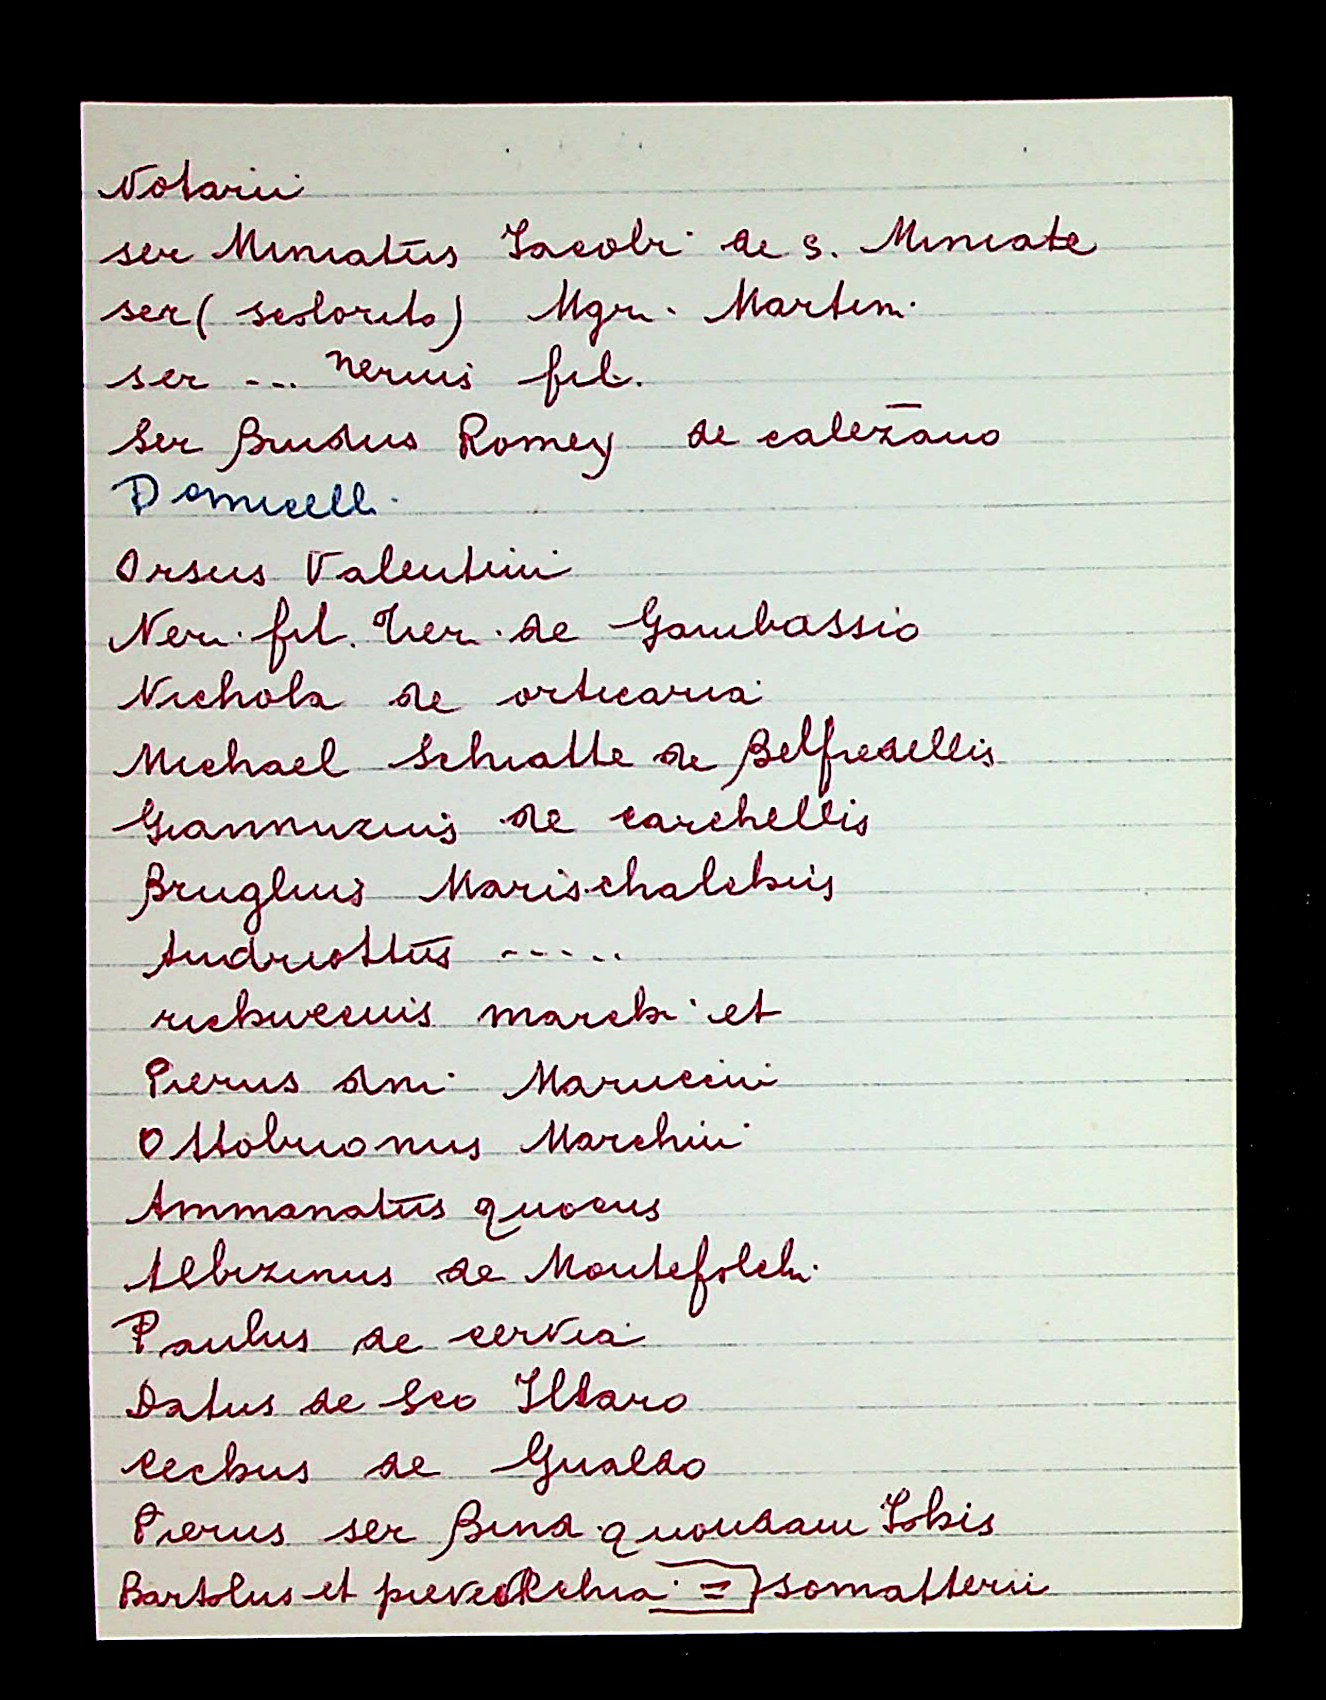 Notarii
ser Miniatus Iacobi de S. Miniate
ser (scolorito) Mgr. Martini
ser --- nerius fil.
Ser Bindus Romey de calezano
Domicelli
Orsus Valentini
Neri fil. Vier. de Gambassio
Nichola de orticaria
Michael Schiatte de Belfredellis
Giannuzius de carchellis
Brughius Marischalchus
Andriottus -----
marchi et
Pierus dni Maruccini
Ottobuonus Marchini
Ammanatus quocus
Albizinus de Montefolchi
Paulus de cervia
Datus de Sco Illaro
Cechus de Gualdo
Pierus ser Bind. quondam
Bartolus et = somatterii